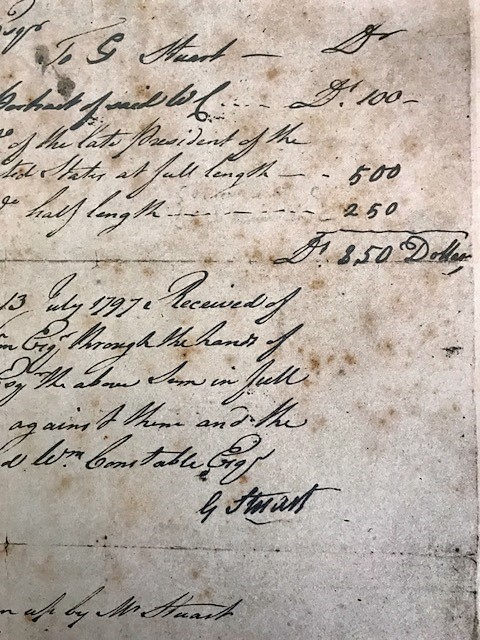 Esqr
To G Stuart — Dr
Portrait of said WC ---- Ds. 100-
Do of the late President of the
ted States at full length — - 500
Do half length -------- 250
Ds 850 Dollars
13 July 1797 Received of
Esqr through the hands of
Esqr the above Sum in full
against them and the
d Wm. Constable Esqr
G Stuart
n up by Mr Stuart